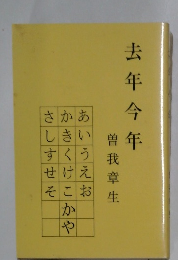 去年今年
曽我章生
あいうえお
かきくけこかや
さしすせそ